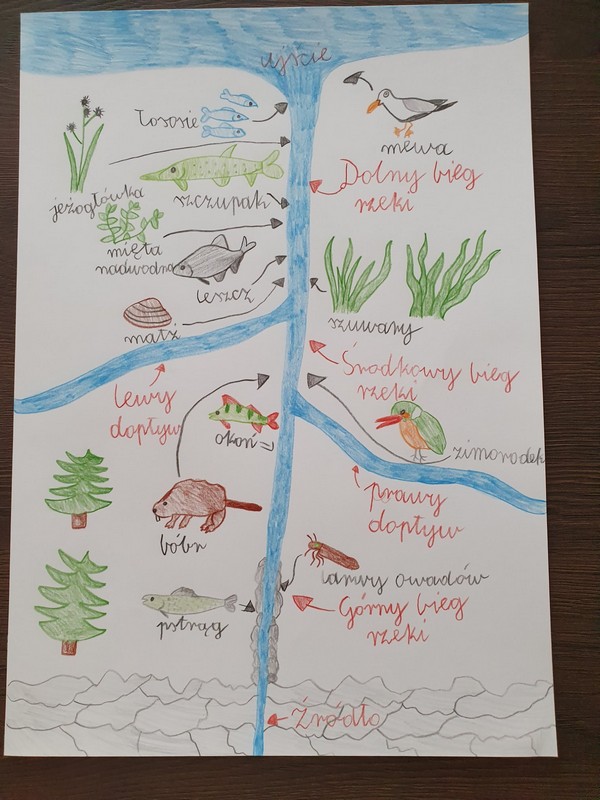 ujście
łososie
mewa
Dolny bieg
rzeki
szczupak
jeżogłówka
mięta
nadwodna
leszcz
szuwary
małż
Środkowy bieg
rzeki
lewy
dopływ
okoń
zimorodek
prawy
dopływ
bóbr
larwy owadów
Górny bieg
rzeki
pstrąg
Źródło